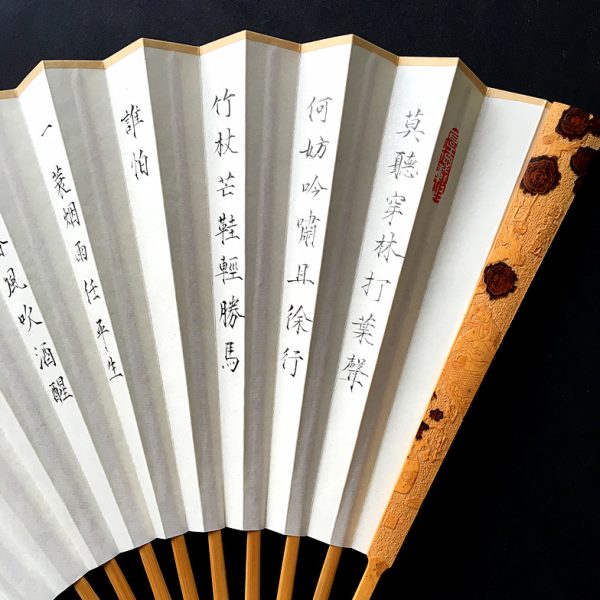 莫聽穿林打葉聲
何妨吟嘯且徐行
竹杖芒鞋輕勝馬
誰怕
一蓑烟雨任平生
春風吹酒醒